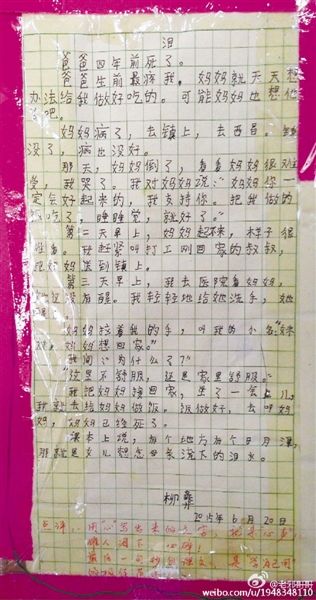 泪
爸爸四年前死了。
爸爸生前最疼我，妈妈就天天想
办法给我做好吃的。可能妈妈也想他
了吧。
妈妈病了，去镇上，去西昌，
没了，病也没好。
那天，妈妈倒了，看看妈妈很难
受，我哭了。我对妈妈说：“妈妈你一
定会好起来的，我支持你。把我做的
饭吃了，睡睡觉，就好了。”
第二天早上，妈妈起不来，样子很
难看。我赶紧叫打工刚回家的叔叔，
把妈妈送到镇上。
第三天早上，我去医院看妈妈，
她还没有醒。我轻轻地给她洗手，她
醒了。
妈妈拉着我的手，叫我的小名“妹
妹，妈妈想回家。”
我问：“为什么了？”
“这里不舒服，还是家里舒服。”
我把妈妈接回家，坐了一会儿，
我就去给妈妈做饭。饭做好，去叫妈
妈，妈妈已经死了。
课本上说，有个地方有个日月潭，
那就是女儿想念母亲流下的泪水。
柳彝
2015年6月20日
点评：用“心”写出来的文字，
催人泪下，心碎！
最后一句
weibo.com/u/1948348110